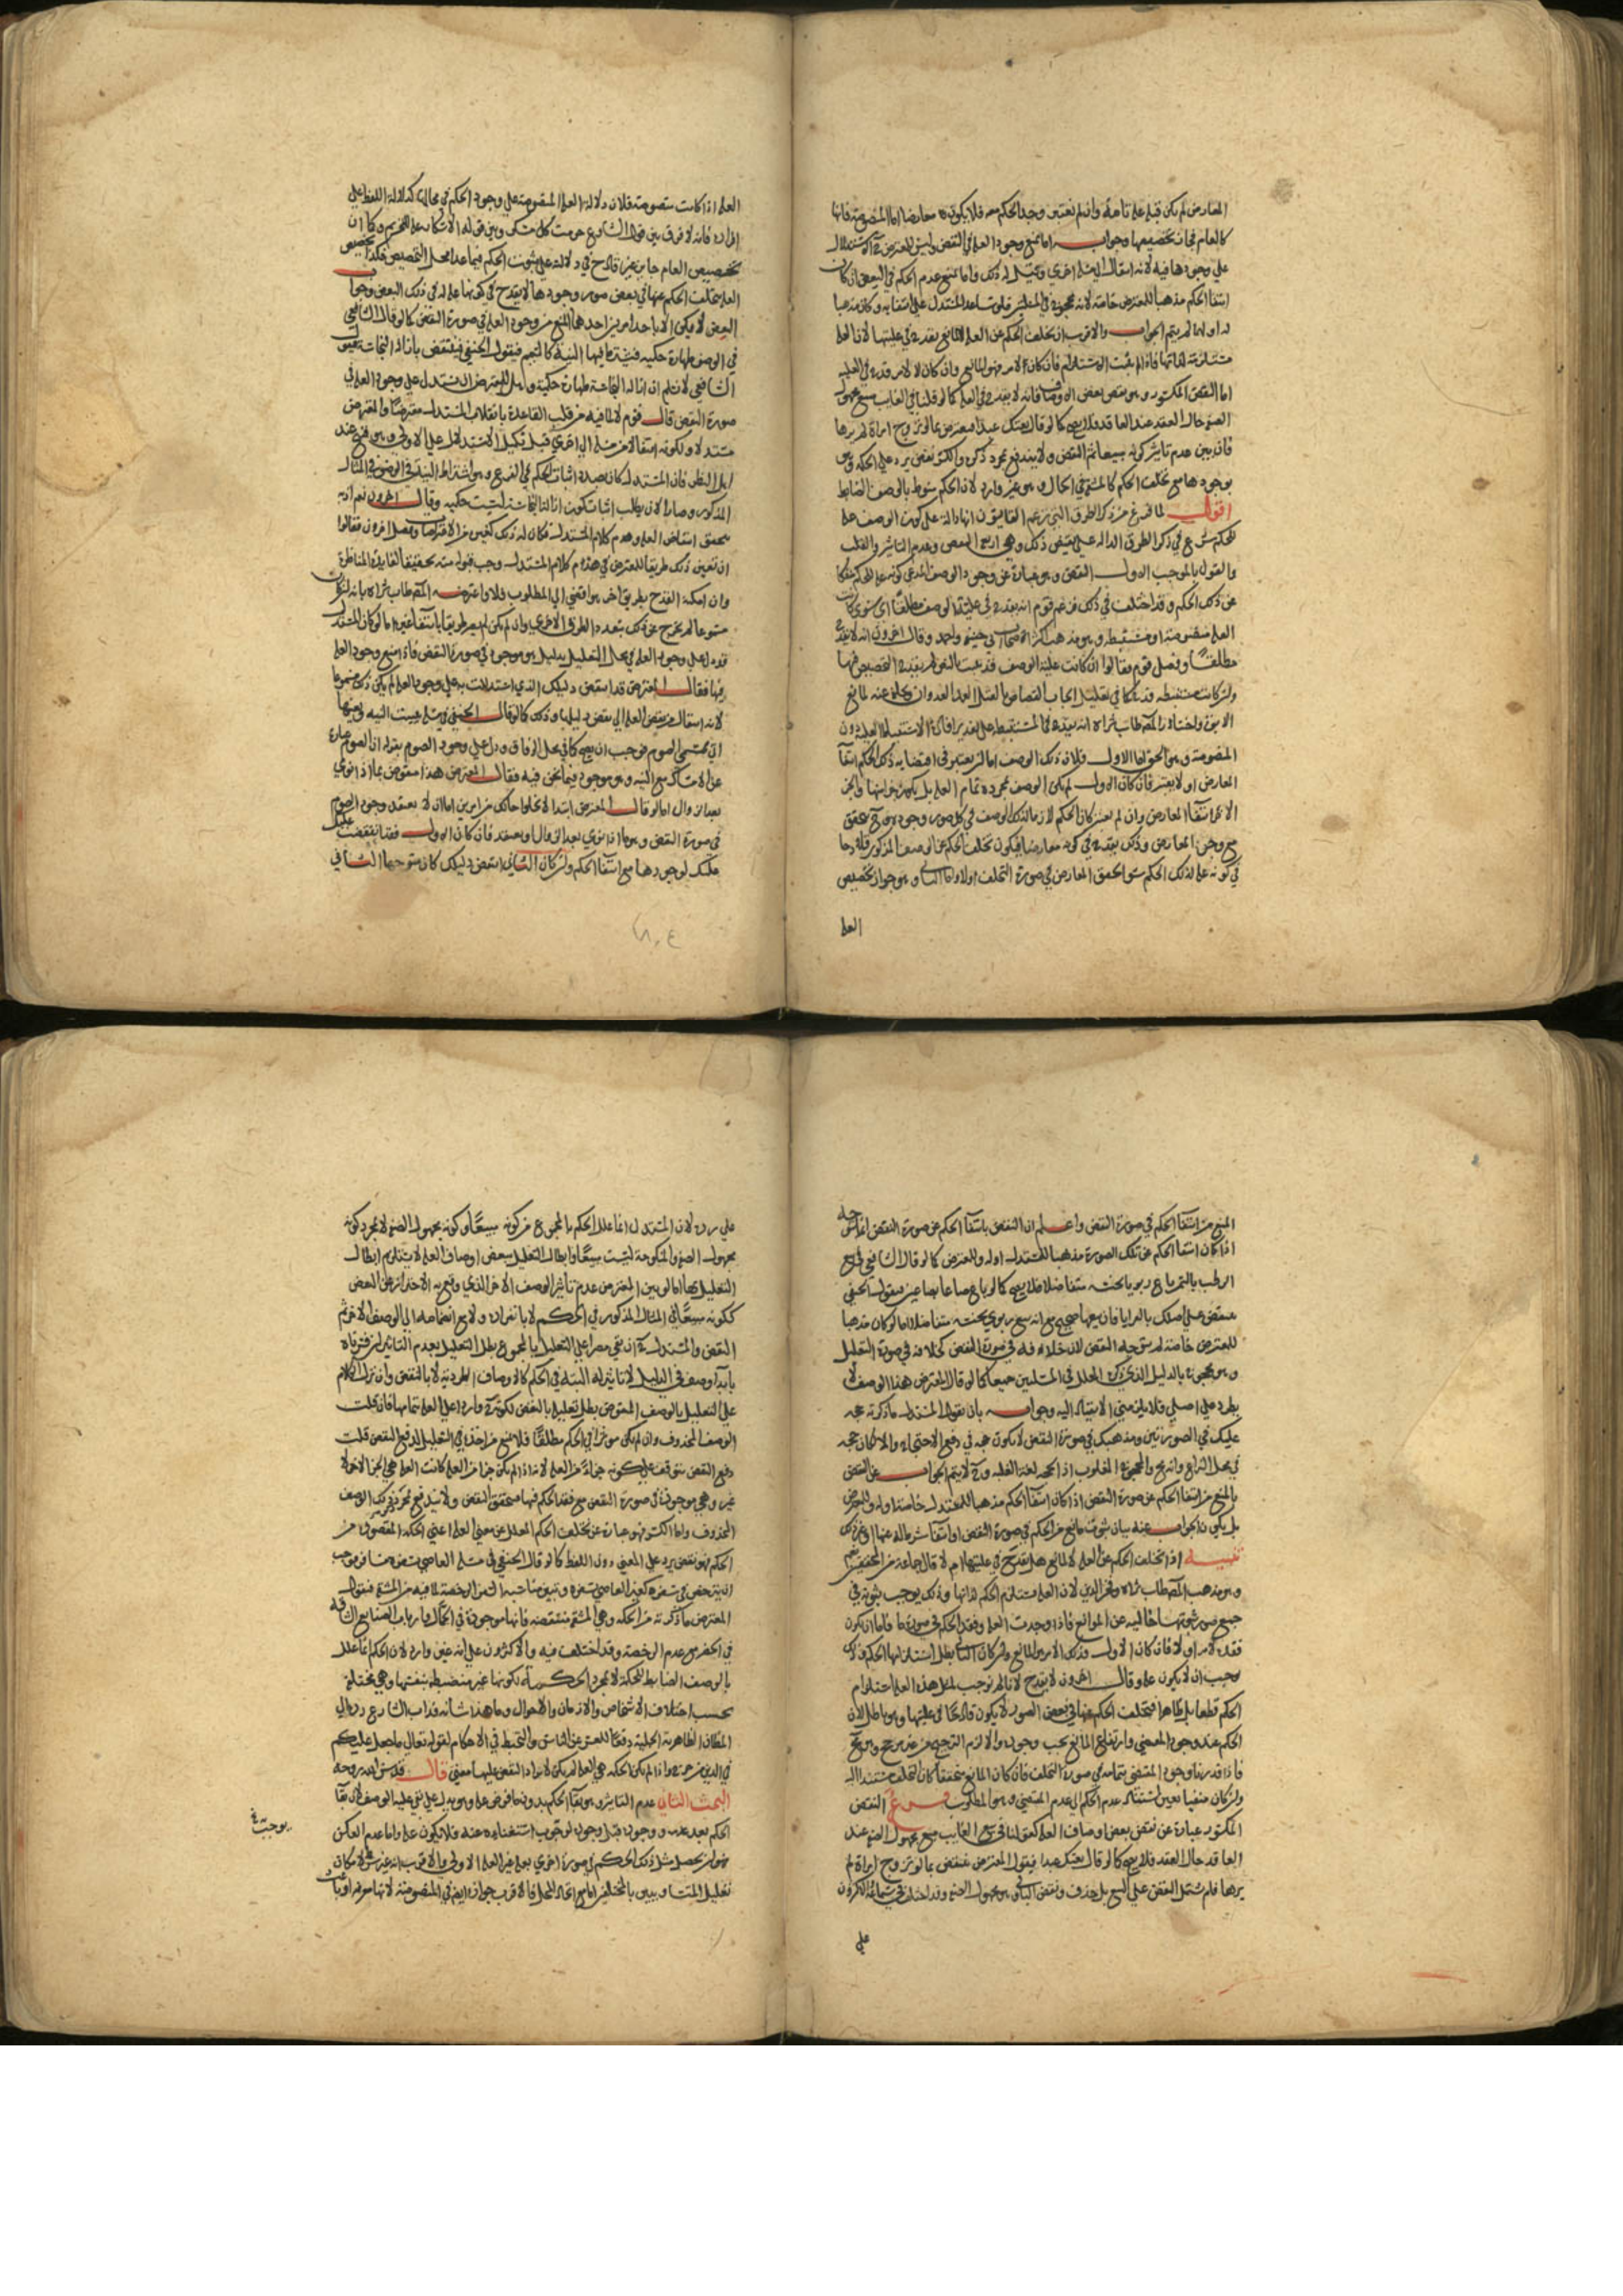 المعارض لم يكن قبله علة تامة وان لم تعتبر وجد الحكم معه فلا يكون معارضا اما المنصوصة فانها
كالعام فجاز تخصيصها وجوابه اما بمنع وجود العلة في النقض وليس للمعترض الاستدلال
على وجودها فيه لانه انتقال الى مسئلة اخرى وقيل له ذلك واما بمنع عدم الحكم في البعض ان كان
انتفا الحكم مذهبا للمعترض خاصة لانه محجوج
له او لهما لم يتم الجواب والاقرب ان تخلف الحكم عن العلة لا لمانع يقدح في عليتها لان العلة
مستلزمة لذاتها فاذا لم يثبت الاستلزام فان كان لامر فهو المانع وان كان لا لامر قدح في العلية
اما النقض المكسور وهو نقض بعض الاوصاف فانه لا يقدح في العلة كما لو قلنا في الغايب مبيع مجهول
الصفة حال العقد عند العاقد فلا يصح كما لو قال بعتك عبدا فيعترض بما لو تزوج امراة لم يرها
فان بين عدم تاثير كونه مبيعا تم النقض ولا يندفع بمجرد ذكره والكسر نقض يرد على الحكمة وهو
بوجودها مع تخلف الحكم كالمشقة في الحمال وهو غير وارد لان الحكم منوط بالوصف الضابط
اقول لما فرغ من ذكر الطرق التي زعم القايسون انها دالة على كون الوصف علة
للحكم شرع في ذكر الطرق الدالة على نقيض ذلك وهي اربع النقض وعدم التاثير والقلب
والقول بالموجب الاول النقض وهو عبارة عن وجود الوصف المدعى كونه علة للحكم منفكا
عن ذلك الحكم وقد اختلف في ذلك فزعم قوم انه يقدح في علية الوصف مطلقا اي سوى كانت
العلة منصوصة او مستنبطة وهو مذهب اكثر اصحاب ابي حنيفة واحمد وقال اخرون انه لا يقدح
مطلقا وفصل قوم فقالوا ان كانت علية الوصف قد ثبتت بالنص لم يقدح التخصيص فيها
وان كانت مستنبطة قدح كما في تعليل ايجاب القصاص بالقتل العمد العدوان وتخلف عنه لمانع
الابوة واختار المصنف طاب ثراه انه يقدح في المستنبطة على تقدير
المنصوصة وهو الحق اما الاول فلان ذلك الوصف اما ان يعتبر في اقتضايه ذلك الحكم انتفا
المعارض او لا يعتبر فان كان الاول لم يكن الوصف بمجرده تمام العلة بل يكون جزا منها والجز
الاخر انتفا المعارض وان لم يعتبر كان الحكم لازما لذلك الوصف في كل صور وجوده
مع وجود المعارض وذلك يقدح في كونه معارضا فيكون تخلف الحكم عن الوصف المذكور قادحا
في كونه علة لذلك الحكم سوا تحقق المعارض في صورة التخلف او لا واما الثاني وهو جواز تخصيص
العلة
العلة اذا كانت منصوصة فلان دلالة العلة المنصوصة على وجود الحكم في محالها كدلالة اللفظ على
افراده فانه لا فرق بين قول الشارع حرمت كل مسكر وبين قوله الاسكار علة التحريم وكما ان
تخصيص العام جايز غير قادح في دلالته على ثبوت الحكم فيما عدا محل التخصيص فكذا تخصيص
العلة بتخلف الحكم عنها في بعض صور وجودها لا يقدح في كونها علة له في ذلك البعض وجواب
النقض لا يمكن الا باحد امرين احدهما المنع من وجود العلة في صورة النقض كما لو قال الشافعي
في الوضوء طهارة حكمية فيشترط فيها النية كالتيمم فيقول الحنفي ينتقض بازالة النجاسة فيقول
الشافعي لا نسلم ان ازالة النجاسة طهارة حكمية وهل للمعترض ان يستدل على وجود العلة في
صورة النقض قال قوم لا لما فيه من قلب القاعدة بانقلاب المستدل معترضا والمعترض
مستدلا ولكونه انتقالا من مسئلة الى اخرى قبل تكميل الاستدلال على الاولى وهو قبيح عند
اهل النظر فان المستدل كان بصدد اثبات الحكم في الفرع وهو اشتراط النية في الوضوء في المثال
المذكور وصار الان يطلب اثبات كون ازالة النجاسة ليست حكمية وقال اخرون نعم اذ به
يتحقق انتقاض العلة وهدم كلام المستدل فكان له ذلك كغيره من الاعتراضات وفصل اخرون فقالوا
ان تعين ذلك طريقا للمعترض في هدم كلام المستدل وجب قبوله منه تحقيقا لفايدة المناظرة
وان امكنه القدح بطريق اخر هو افضى الى المطلوب فلا واعترضه المصنف طاب ثراه بانه ان كان
مسموعا لم يخرج عن ذلك بتعدد الطرق الاخرى وان لم يكن لم يصر طريقا بانتفا غيره اما لو كان المستدل
قد دل على وجود العلة في محل التعليل بدليل هو موجود في صورة النقض فاذا منع وجود العلة
فيها فقال المعترض قد انتقض دليلك الذي استدللت به على وجود العلة لم يكن ذلك مسموعا
لانه انتقال من نقض العلة الى نقض دليلها وذلك كما لو قال الحنفي في مسئلة تبييت النية
اتى بمسمى الصوم فوجب ان يصح كما في محل الوفاق ودل على وجود الصوم بقوله ان الصوم عبارة
عن الامساك مع النية وهو موجود فيما نحن فيه فقال المعترض هذا منقوض بما اذا نوى
بعد الزوال اما لو قال المعترض ابتدا لا يخلوا حالك من امرين اما ان لا يعتقد وجود الصوم
في صورة النقض وهو ما اذا نوى بعد الزوال او يعتقد فان كان الاول فقد انتقضت
علتك لوجودها مع انتفا الحكم وان كان الثاني انتقض دليلك كان متوجها الثاني
المنع من انتفا الحكم في صورة النقض واعلم ان النقض بانتفا الحكم عن صورة النقض انما يتوجه
اذا كان انتفا الحكم عن تلك الصورة مذهبا للمستدل او له وللمعترض كما لو قال الشافعي في بيع
الرطب بالتمر باع ربويا بجنسه متفاضلا فلا يصح كما لو باع صاعا بصاعين فيقول الحنفي
ينتقض على اصلك بالعرايا فان بيعها صحيح مع انه بيع ربوي بجنسه متفاضلا اما لو كان مذهبا
للمعترض خاصة لم يتوجه النقض لان خلافه فيه في صورة النقض كخلافه في صورة التعليل
وهو محجوج بالدليل الذي ذكره المعلل في المسئلتين جميعا كما لو قال المعترض هذا الوصف لا
يطرد على اصلي فلا يلزمني الانقياد اليه وجوابه بان يقول المستدل ما ذكرته حجة
عليك في الصورتين ومذهبك في صورة النقض لا يكون حجة في دفع الاحتجاج والا لكان حجة
في محل النزاع
بالمنع من انتفا الحكم عن صورة النقض اذا كان انتفا الحكم مذهبا للمستدل خاصة او له وللمعترض
بل يكون الجواب عنه ببيان ثبوت مانع من الحكم في صورة النقض او انتفا شرط له عنها او غير ذلك
تنبيه اذا تخلف الحكم عن العلة لا لمانع هل يقدح في عليتها ام لا قال جماعة من المحققين نعم
وهو مذهب المصنف طاب ثراه وفخر الدين لان العلة تستلزم الحكم لذاتها وذلك يوجب ثبوته في
جميع صور ثبوتها خالية عن الموانع فاذا وجدت العلة وفقد الحكم في صورة ما فاما ان يكون
فقده لامر او لا فان كان الاول فذلك الامر هو المانع وان كان الثاني بطل استلزامها الحكم فذلك
يوجب ان لا يكون علة وقال اخرون لا يقدح لانا لم نوجب لمثل هذه العلة استلزام
الحكم قطعا بل ظاهرا فتخلف الحكم عنها في بعض الصور لا يكون قادحا في عليتها وهو باطل لان
الحكم عند وجود المقتضي وارتفاع المانع يجب وجوده والا لزم الترجيح من غير مرجح وهو مح
فاذا قدرنا وجود المقتضي بتمامه في صورة التخلف فان كان المانع متحققا كان التخلف مستندا اليه
وان كان منفيا تعين استناد عدم الحكم الى عدم المقتضي وهو المطلوب فرع النقض
المكسور عبارة عن نقض بعض اوصاف العلة كقولنا في بيع الغايب مبيع مجهول الصفة عند
العاقد حال العقد فلا يصح كما لو قال بعتك عبدا فيقول المعترض ينتقض بما لو تزوج امراة لم
يرها فلم يشتمل النقض على البيع بل حذف ونقض الباقي وهو مجهول الصفة وقد اختلف في سماعه فالاكثرون
على
على رده لان المستدل انما علل الحكم بالمجموع من كونه مبيعا وكونه مجهول الصفة لا بمجرد كونه
مجهول الصفة والمنكوحة ليست مبيعا وابطال التعليل ببعض اوصاف العلة لا يستلزم ابطال
التعليل بها اما لو بين المعترض عدم تاثير الوصف الاخر الذي وقع به الاحتراز عن النقض
ككونه مبيعا في المثال المذكور في الحكم لا بانفراده ولا مع انضمامه الى الوصف الاخر تم
النقض والمستدل ان بقي مصرا على التعليل بالمجموع بطل التعليل بعدم التاثير
على التعليل بالوصف المنقوض بطل تعليله بالنقض لكونه واردا على العلة بتمامها فان قلت
الوصف المحذوف وان لم يكن موثرا في الحكم مطلقا فلا يمنع من اخذه في التعليل لدفع النقض قلت
دفع النقض يتوقف على كونه جزءا من العلة لانه اذا لم يكن جزا من العلة كانت العلة هي الجز الاخر لا
غير وهي موجودة في صورة النقض مع فقد الحكم فيها فيتحقق النقض ولا يندفع بمجرد ذكر الوصف
المحذوف واما الكسر فهو عبارة عن تخلف الحكم المعلل عن معنى العلة اعني الحكمة المقصودة من
الحكم فهو نقض يرد على المعنى دون اللفظ كما لو قال الحنفي في مسئلة العاصي بسفره مسافر فوجب
ان يترخص في سفره كغير العاصي بسفره ويبين مناسبة السفر للرخصة لما فيه من المشقة فيقول
المعترض ما ذكرته من الحكمة وهي المشقة منتقضة فانها موجودة في الحمال وارباب الصنايع الشاقة
في الحضر مع عدم الرخصة وقد اختلف فيه والاكثرون على انه غير وارد لان الحكم انما علل
بالوصف الضابط للحكمة لا بمجرد الحكمة لكونها غير منضبطة بنفسها وهي مختلفة
بحسب اختلاف الاشخاص والازمان والاحوال وما هذا شانه فداب الشارع رده الى
المظان الظاهرة الجلية دفعا للعسر عن الناس والتخبط في الاحكام لقوله تعالى ما جعل عليكم
في الدين من حرج واذا لم يكن الحكمة هي العلة لم يكن لايراد النقض عليها معنى قال قدس الله روحه
البحث الثاني عدم التاثير وهو بقا الحكم بدون ما فرض علة وهو يدل على نفي علية الوصف لان بقا
الحكم بعد عدمه ووجوده قبل وجوده يوجب استغناءه عنه فلا يكون علة واما عدم العكس
فهو ان يحصل مثل ذلك الحكم في صورة اخرى بعلة غير العلة الاولى والاقرب انه غير شرط لامكان
تعليل المتساويين بالمختلفين اما مع اتحاد المحل فالاقرب جوازه ايض في المنصوصة لانها معرفة او باعثة
يوجب